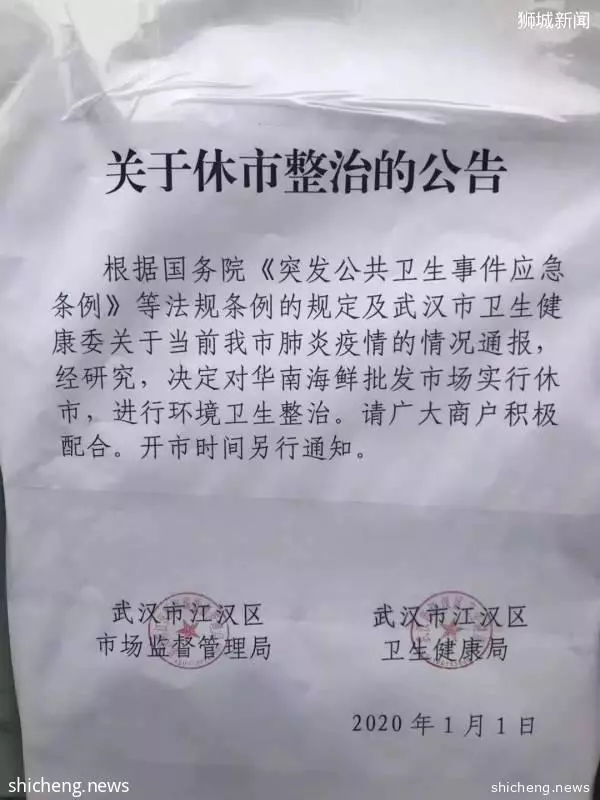 狮城新闻
关于休市整治的公告
根据国务院《突发公共卫生事件应急
条例》等法规条例的规定及武汉市卫生健
康委关于当前我市肺炎疫情的情况通报，
经研究，决定对华南海鲜批发市场实行休
市，进行环境卫生整治。请广大商户积极
配合。开市时间另行通知。
武汉市江汉区
市场监督管理局
武汉市江汉区
卫生健康局
2020年1月1日
shicheng.news
shicheng.news